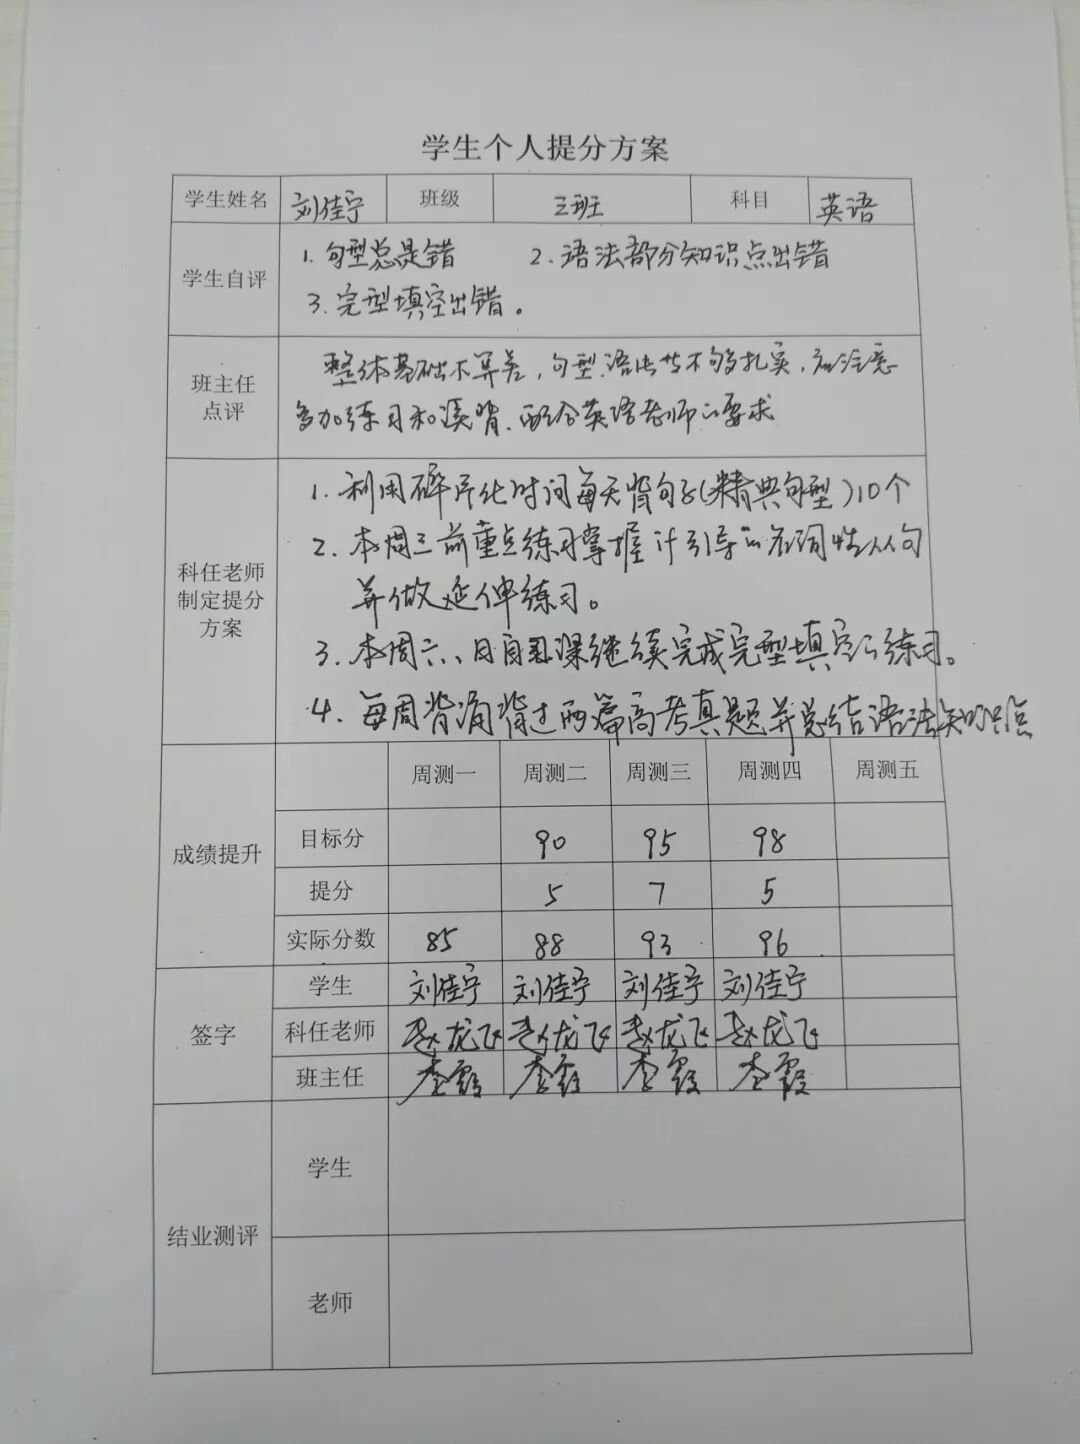 学生个人提分方案
学生姓名 刘佳宁 班级 三班 科目 英语
学生自评
1.句型总是错 2.语法部分知识点出错
3.完型填空出错。
班主任
点评
整体基础不算差,句型、语法不够扎实,应注意
多加练习和读背,配合英语老师的要求
科任老师
制定提分
方案
1.利用碎片化时间每天背句子(精典句型)10个
2.本周三前重点练习掌握it引导的名词性从句
并做延伸练习。
3.本周六、日自习课继续完成完型填空的练习。
4.每周背诵背过两篇高考真题并总结语法知识点
成绩提升
周测一 周测二 周测三 周测四 周测五
目标分 90 95 98
提分 5 7 5
实际分数 85 88 93 96
签字
学生 刘佳宁 刘佳宁 刘佳宁 刘佳宁
科任老师 赵龙飞 赵龙飞 赵龙飞 赵龙飞
班主任 李霞 李霞 李霞 李霞
结业测评
学生
老师